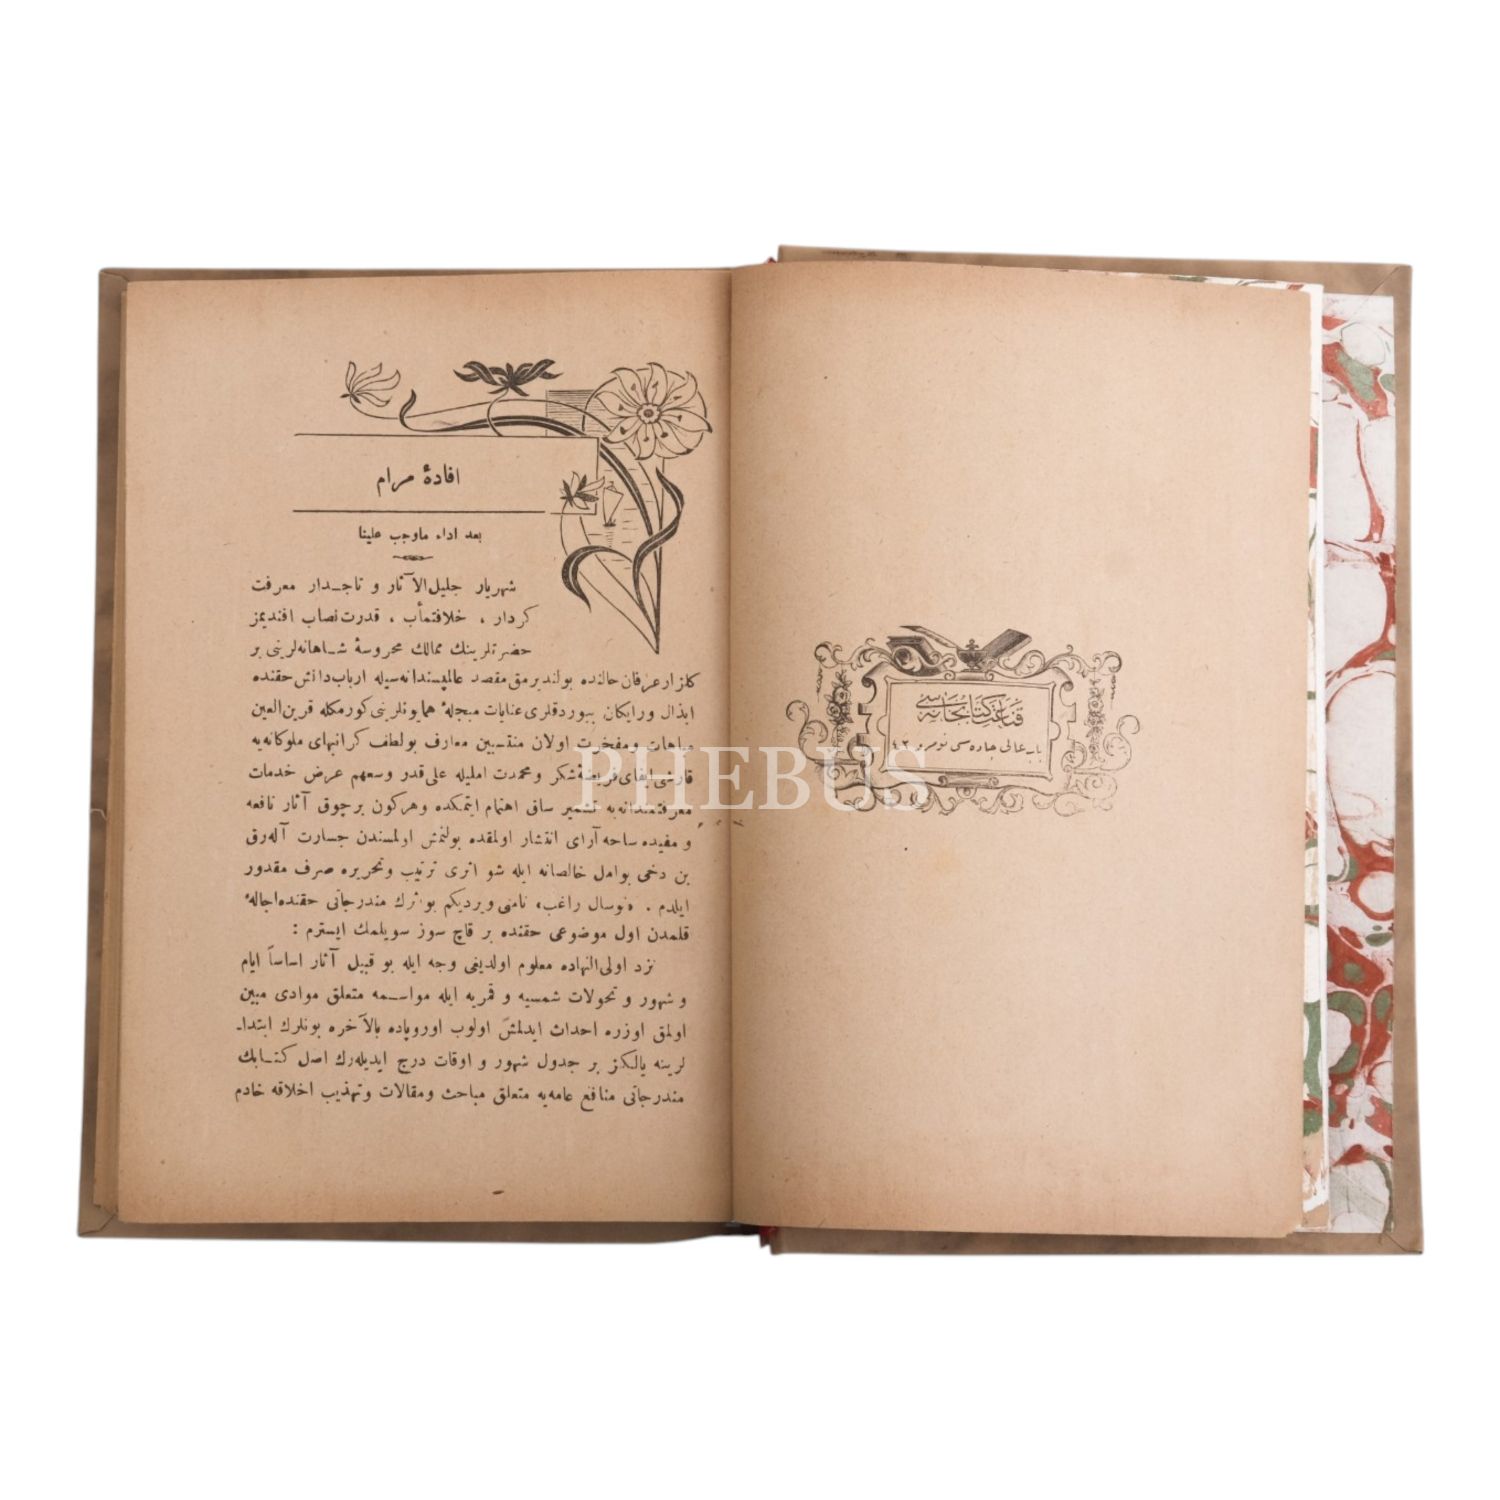 قناعت كتابخانه‌سى
باب عالى جاده سى نومرو ٤٢
افادۀ مرام
بعد اداء ماوجب علينا
شهريار جليل‌الآثار و تاجدار معرفت
كردار ، خلافتمأب ، قدرت‌نصاب افنديمز
حضرتلرينك ممالك محروسۀ شاهانه‌لرينى بر
كلزار عرفان حالنده بولنديرمق مقصد عالمپسندانه‌سيله ارباب دانش حقنده
ابذال و رايكان بيوردقلرى عنايات مبجلۀ همايونلرينى كورمكله قرين‌العين
مباهات و مفخرت اولان منتسبين معارف بولطف كرانبهاى ملوكانه‌يه
قارشى ايفاى فريضۀ شكر و محمدت امليله على قدر وسعهم عرض خدمات
معرفتمندانه‌يه تشمير ساق اهتمام ايتمكده وهركون برچوق آثار نافعه
و مفيده ساحه آراى انتشار اولمقده بولنمش اولمسندن جسارت آله‌رق
بن دخى بوامل خالصانه ايله شو اثرى ترتيب وتحريره صرف مقدور
ايلدم . «نوسال راغب» نامنى ويرديكم بواثرك مندرجاتى حقنده اجالۀ
قلمدن اول موضوعى حقنده بر قاچ سوز سويلمك ايسترم :
نزد اولى‌النهاده معلوم اولديغى وجه ايله بو قبيل آثار اساساً ايام
و شهور و تحولات شمسيه و قمريه ايله مواسمه متعلق موادى مبين
اولمق اوزره احداث ايدلمش اولوب اوروپاده بالآخره بونلرك ابتدا-
لرينه يالكز بر جدول شهور و اوقات درج ايديله‌رك اصل كتابك
مندرجاتى منافع عامه‌يه متعلق مباحث ومقالات وتهذيب اخلاقه خادم
PHEBUS